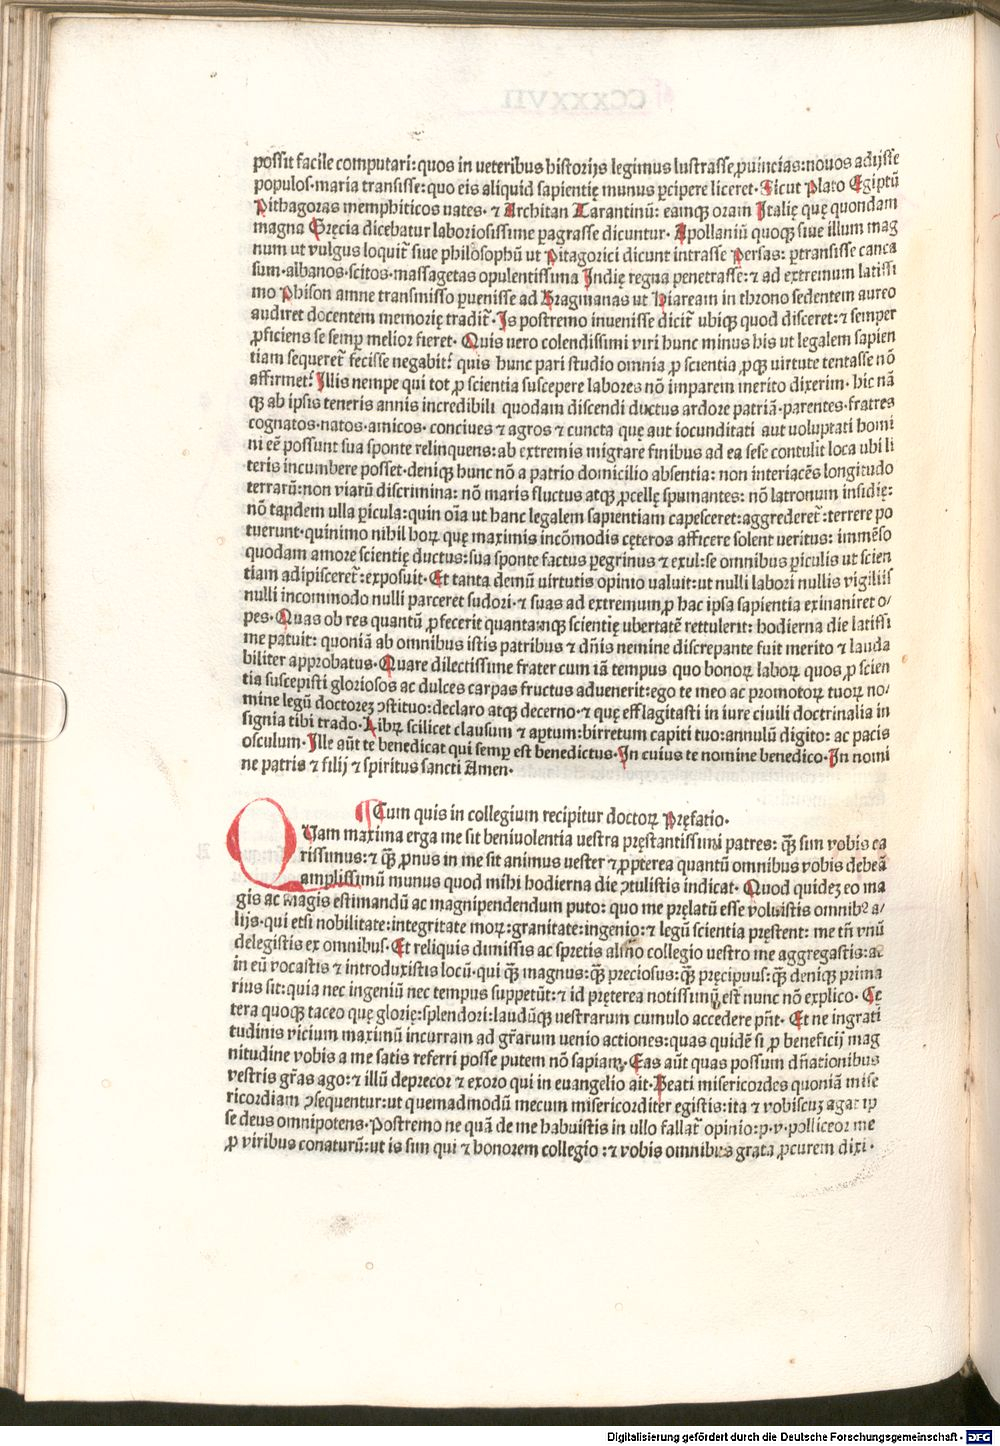 possit facile computari: quos in ueteribus historijs legimus lustrasse ꝓuincias: nouos adijsse
populos. maria transisse: quo eis aliquid sapientię munus ꝑcipere liceret. Sicut Plato Egiptū
Pithagoras memphiticos uates. ⁊ Architan Tarantinū: eamqꝫ oram Italię quę quondam
magna Gręcia dicebatur laboriosissime ꝑagrasse dicuntur. Apollaniū quoqꝫ siue illum mag
num ut vulgus loquit᷑ siue philosophū ut Pitagorici dicunt intrasse Persas: ꝑtransisse cauca
sum. albanos. scitos. massagetas opulentissima Indię regna penetrasse: ⁊ ad extremum latissi
mo Phison amne transmisso ꝑuenisse ad Bragmanas ut Hiaream in throno sedentem aureo
audiret docentem memorię tradit᷑. Is postremo inuenisse dicit᷑ ubiqꝫ quod disceret: ⁊ semper
ꝓficiens se semꝑ melior fieret. Quis uero colendissimi viri hunc minus his ut legalem sapien
tiam sequeret᷑ fecisse negabit? quis hunc pari studio omnia ꝓ scientia ꝓqꝫ uirtute tentasse nō
affirmet? Illis nempe qui tot ꝓ scientia suscepere labores nō imparem merito dixerim. hic nā
qꝫ ab ipsis teneris annis incredibili quodam discendi ductus ardore patriā. parentes. fratres
cognatos. natos. amicos. conciues ⁊ agros ⁊ cuncta quę aut iocunditati aut uoluptati homi
ni eē possunt sua sponte relinquens: ab extremis migrare finibus ad ea sese contulit loca ubi li
teris incumbere posset. deniqꝫ hunc nō a patrio domicilio absentia: non interiacēs longitudo
terrarū: non viarū discrimina: nō maris fluctus atqꝫ ꝓcellę spumantes: nō latronum insidię:
nō tandem ulla ꝑicula: quin oīa ut hanc legalem sapientiam capesceret: aggrederet᷑: terrere po
tuerunt. quinimo nihil hoꝝ quę maximis incōmodis cęteros afficere solent ueritus: immēso
quodam amore scientię ductus: sua sponte factus ꝑegrinus ⁊ exul: se omnibus ꝑiculis ut scien
tiam adipisceret᷑: exposuit. Et tanta demū uirtutis opinio ualuit: ut nulli labori nullis vigiliis
nulli incommodo nulli parceret sudori. ⁊ suas ad extremum ꝓ hac ipsa sapientia exinaniret o/
pes. Quas ob res quantū ꝓfecerit quantamqꝫ scientię ubertatē rettulerit: hodierna die latissi
me patuit: quoniā ab omnibus istis patribus ⁊ dn̄is nemine discrepante fuit merito ⁊ lauda
biliter approbatus. Quare dilectissime frater cum iā tempus quo bonoꝝ laboꝝ quos ꝓ scien
tia suscepisti gloriosos ac dulces carpas fructus aduenerit: ego te meo ac promotoꝝ tuoꝝ no/
mine legū doctorez ꝯstituo: declaro atqꝫ decerno. ⁊ quę efflagitasti in iure ciuili doctrinalia in
signia tibi trado. Libꝝ scilicet clausum ⁊ aptum: birretum capiti tuo: annulū digito: ac pacis
osculum. Ille aūt te benedicat qui semꝑ est benedictus. In cuius te nomine benedico. In nomi
ne patris ⁊ filij ⁊ spiritus sancti Amen.
¶ Cum quis in collegium recipitur doctoꝝ Pręfatio.
QUam maxima erga me sit beniuolentia uestra pręstantissimi patres: qꝫ̄ sim vobis ca
rissimus: ⁊ qꝫ̄ ꝓnus in me sit animus uester ⁊ ꝓpterea quantū omnibus vobis debeā
amplissimū munus quod mihi hodierna die ꝯtulistis indicat. Quod quidez eo ma
gis ac magis estimandū ac magnipendendum puto: quo me pręlatū esse voluistis omnibꝰ a/
lijs. qui etsi nobilitate: integritate moꝝ: grauitate: ingenio: ⁊ legū scientia pręstent: me tn̄ vnū
delegistis ex omnibus. Et reliquis dimissis ac spretis almo collegio uestro me aggregastis: ac
in eū vocastis ⁊ introduxistis locū. qui qꝫ̄ magnus: qꝫ̄ preciosus: qꝫ̄ pręcipuus: qꝫ̄ deniqꝫ prima
rius sit: quia nec ingeniū nec tempus suppetūt: ⁊ id pręterea notissimū est nunc nō explico. Ce
tera quoqꝫ taceo quę glorię: splendori: laudūqꝫ uestrarum cumulo accedere pn̄t. Et ne ingrati
tudinis vicium maximū incurram ad gr̄arum uenio actiones: quas quidē si ꝓ beneficij mag
nitudine vobis a me satis referri posse putem nō sapiam. Eas aūt quas possum dn̄ationibus
vestris gr̄as ago: ⁊ illū deprecor ⁊ exoro qui in euangelio ait. Beati misericordes quoniā mise
ricordiam ꝯsequentur: ut quemadmodū mecum misericorditer egistis: ita ⁊ vobiscuꝫ agat ip
se deus omnipotens. Postremo ne quā de me habuistis in ullo fallat᷑ opinio: p. v. polliceor me
ꝓ viribus conaturū: ut is sim qui ⁊ honorem collegio: ⁊ vobis omnibus grata ꝓcurem dixi.
Digitalisierung gefördert durch die Deutsche Forschungsgemeinschaft - DFG